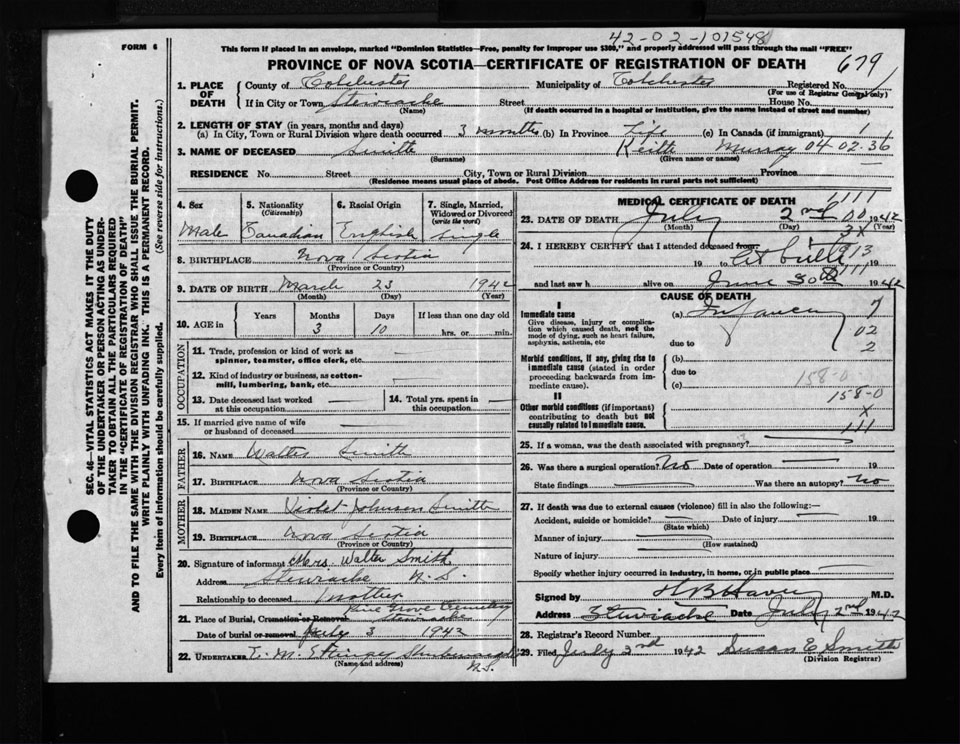 42-02-101548
FORM 6
This form if placed in an envelope, marked "Dominion Statistics—Free, penalty for improper use $300," and properly addressed will pass through the mail "FREE"
PROVINCE OF NOVA SCOTIA—CERTIFICATE OF REGISTRATION OF DEATH
679
1. PLACE OF DEATH
County of Colchester Municipality of Colchester Registered No.
(For use of Registrar General only)
If in City or Town Stewiacke Street House No.
(Name) (If death occurred in a hospital or institution, give the name instead of street and number)
2. LENGTH OF STAY (in years, months and days)
(a) In City, Town or Rural Division where death occurred 3 months (b) In Province Life (c) In Canada (if immigrant)
3. NAME OF DECEASED Smith Keith Murray 04 02.36
(Surname) (Given name or names)
RESIDENCE No. Street City, Town or Rural Division Province
(Residence means usual place of abode. Post Office Address for residents in rural parts not sufficient)
4. Sex 5. Nationality (Citizenship) 6. Racial Origin 7. Single, Married, Widowed or Divorced (write the word)
Male Canadian English Single
8. BIRTHPLACE Nova Scotia
(Province or Country)
9. DATE OF BIRTH March 23 1942
(Month) (Day) (Year)
10. AGE in Years Months Days If less than one day old
3 10 hrs. or min.
OCCUPATION
11. Trade, profession or kind of work as spinner, teamster, office clerk, etc.
12. Kind of industry or business, as cotton-mill, lumbering, bank, etc.
13. Date deceased last worked at this occupation 14. Total yrs. spent in this occupation
15. If married give name of wife or husband of deceased
FATHER
16. NAME Walter Smith
17. BIRTHPLACE Nova Scotia
(Province or Country)
MOTHER
18. MAIDEN NAME Violet Johnson Smith
19. BIRTHPLACE Nova Scotia
(Province or Country)
20. Signature of informant Mrs. Walter Smith
Address Stewiacke N.S.
Relationship to deceased mother
Pine Grove Cemetery
21. Place of Burial, Cremation or Removal Stewiacke
Date of burial or removal July 3 1942
22. UNDERTAKER
(Name and address)
N.S.
MEDICAL CERTIFICATE OF DEATH
1111
23. DATE OF DEATH July 2nd 00 1942
(Month) (Day) (Year)
3X
24. I HEREBY CERTIFY that I attended deceased from
19 to 19
and last saw h alive on June 30th 1942
CAUSE OF DEATH
I
Immediate cause
Give disease, injury or complication which caused death, not the mode of dying, such as heart failure, asphyxia, asthenia, etc
(a) Infancy 7
02
due to 2
Morbid conditions, if any, giving rise to immediate cause (stated in order proceeding backwards from immediate cause).
(b)
due to
(c) 158-0
II 158-0
Other morbid conditions (if important) contributing to death but not causally related to immediate cause.
X
111
25. If a woman, was the death associated with pregnancy?
26. Was there a surgical operation? No Date of operation 19
State findings Was there an autopsy? No
27. If death was due to external causes (violence) fill in also the following:—
Accident, suicide or homicide? Date of injury 19
(State which)
Manner of injury
(How sustained)
Nature of injury
Specify whether injury occurred in industry, in home, or in public place
Signed by M.D.
Address Stewiacke Date July 2nd 1942
28. Registrar's Record Number
29. Filed July 2rd 1942 Susan E Smith
(Division Registrar)
SEC. 46—VITAL STATISTICS ACT MAKES IT THE DUTY
OF THE UNDERTAKER (OR PERSON ACTING AS UNDER-
TAKER TO OBTAIN ALL THE PARTICULARS REQUIRED
IN THE "CERTIFICATE OF REGISTRATION OF DEATH"
AND TO FILE THE SAME WITH THE DIVISION REGISTRAR WHO SHALL ISSUE THE BURIAL PERMIT.
WRITE PLAINLY WITH UNFADING INK. THIS IS A PERMANENT RECORD.
Every item of Information should be carefully supplied. (See reverse side for instructions.)